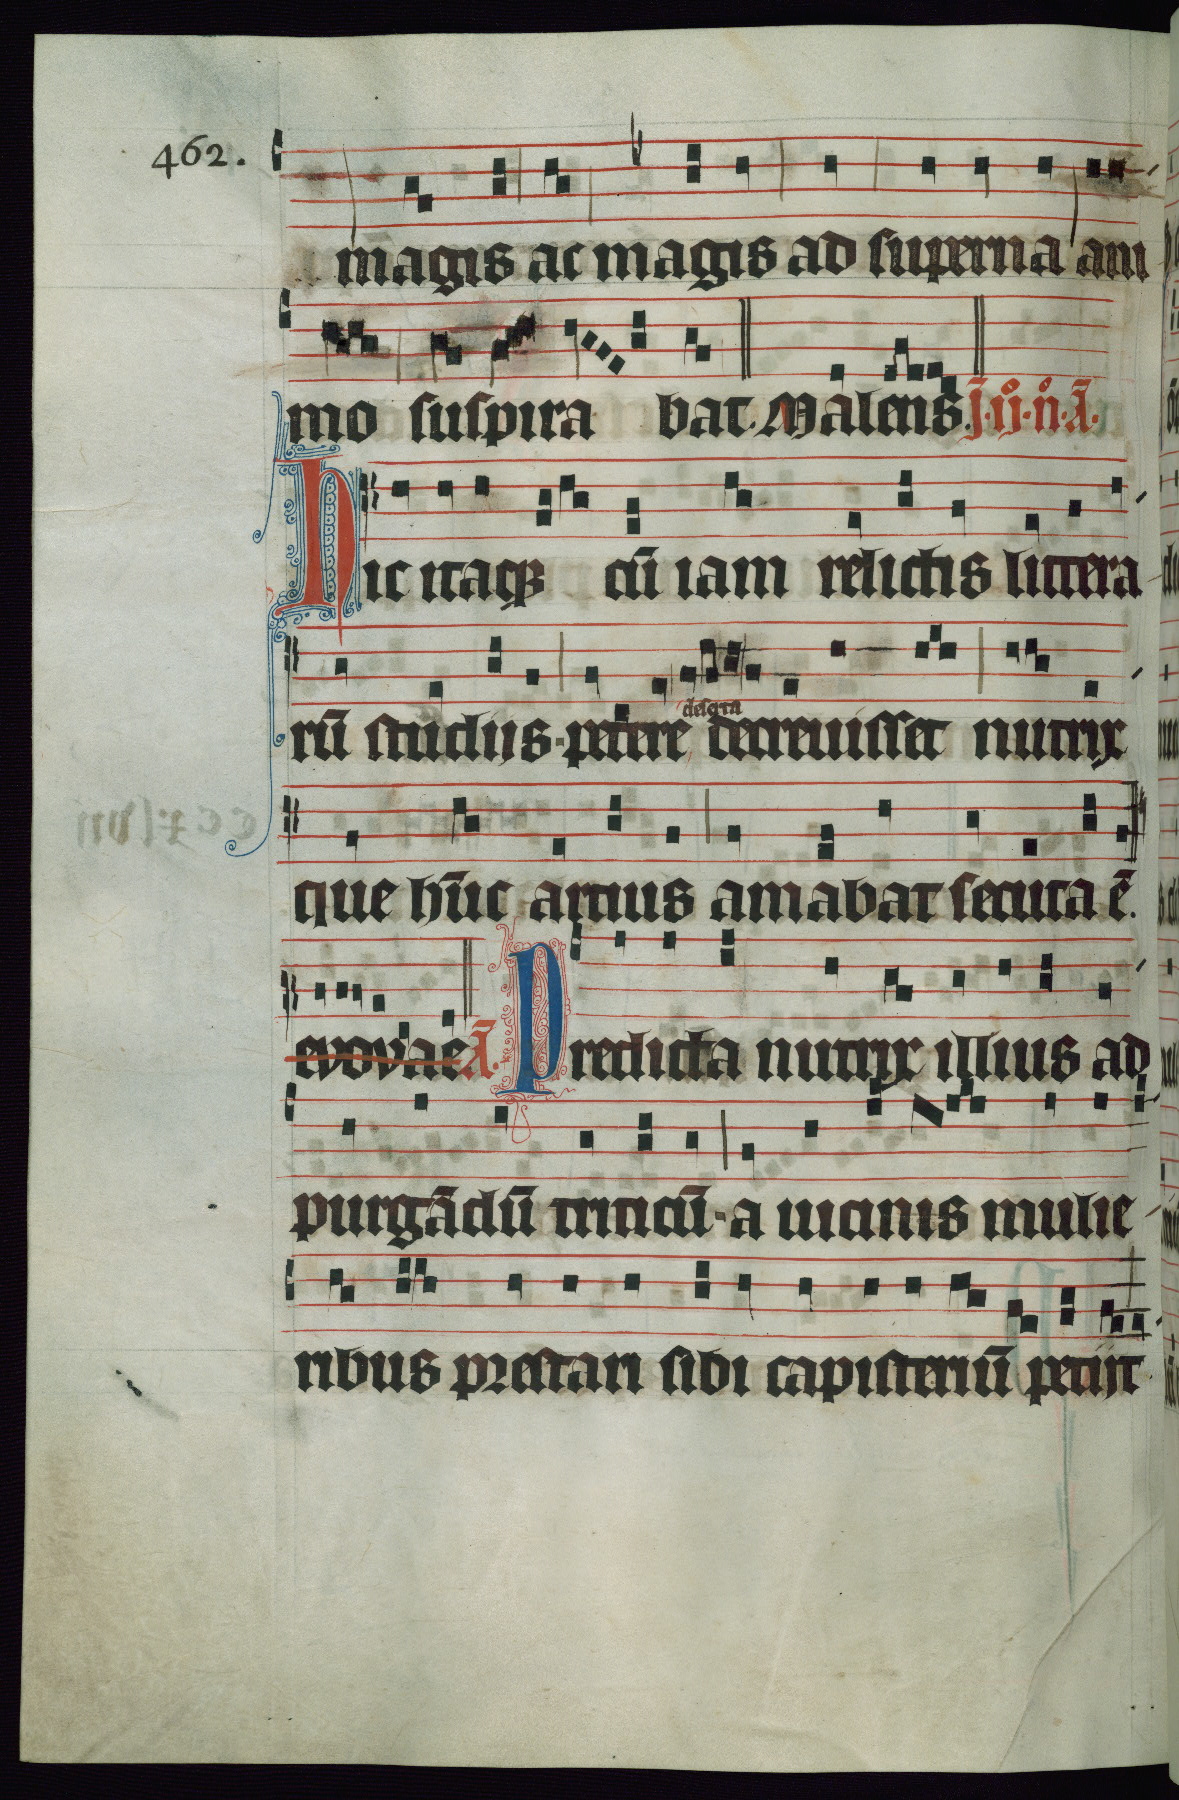 462.
magis ac magis ad superna ani
mo suspira bat. Malens. J. ij. n. A̅.
Hic itaqꝫ cu̅ iam relictis littera
ru̅ studiis petere deserta decreuisset nutrix
que hu̅c artius amabat secuta e̅.
evovae A̅. Predicta nutrix illius ad
purga̅du̅ triticu̅ · a uicinis mulie
ribus prestari sibi capisteriu̅ petijt